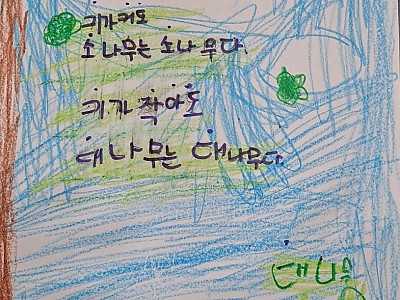 키가커도
소나무는 소나무다.
키가 작아도
대나무는 대나무다.